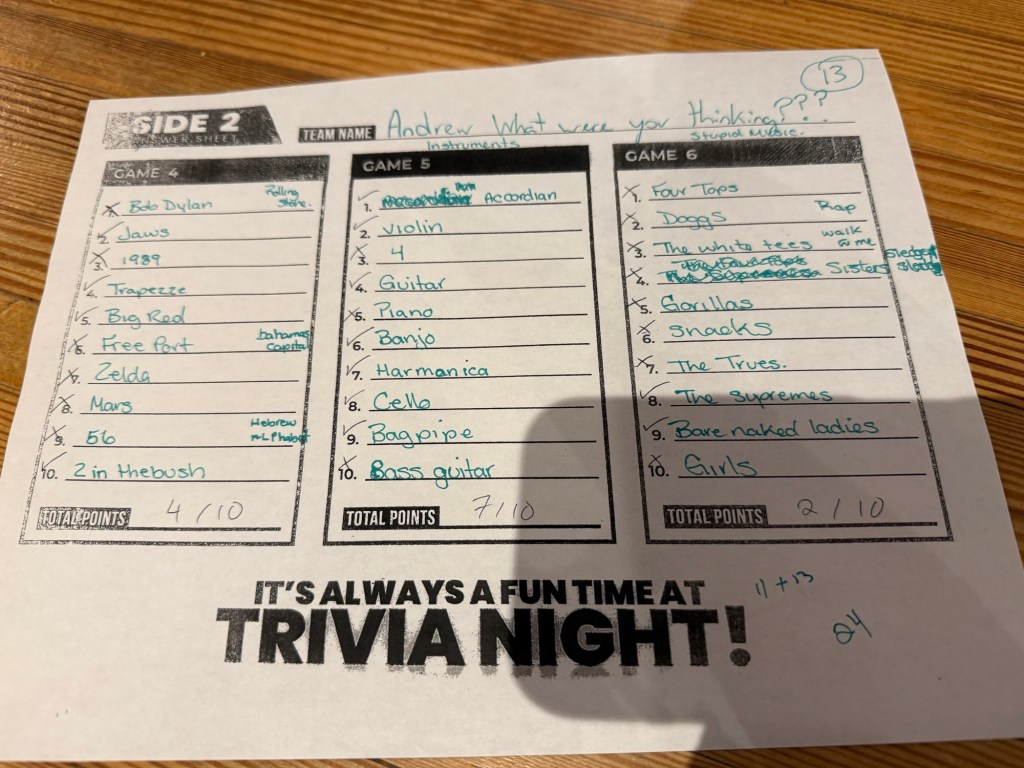 13
SIDE 2
ANSWER SHEET
TEAM NAME Andrew What were you thinking???
Instruments
Stupid Music.
GAME 4
1. Bob Dylan Rolling Stone.
2. Jaws
3. 1989
4. Trapezze
5. Big Red
6. Free Port bahamas Capital
7. Zelda
8. Mars
9. 56 Hebrew Alphabet
10. 2 in thebush
TOTAL POINTS 4/10
GAME 5
1. Accordian
2. violin
3. 4
4. Guitar
5. Piano
6. Banjo
7. Harmanica
8. Cello
9. Bagpipe
10. Bass guitar
TOTAL POINTS 7/10
GAME 6
1. Four Tops
2. Doggs Rap
3. The white tees walk w me
4. Sisters Sledge
5. Gorillas
6. snacks
7. The Trues.
8. The Supremes
9. Bare naked ladies
10. Girls
TOTAL POINTS 2/10
IT'S ALWAYS A FUN TIME AT
TRIVIA NIGHT!
11 + 13
24